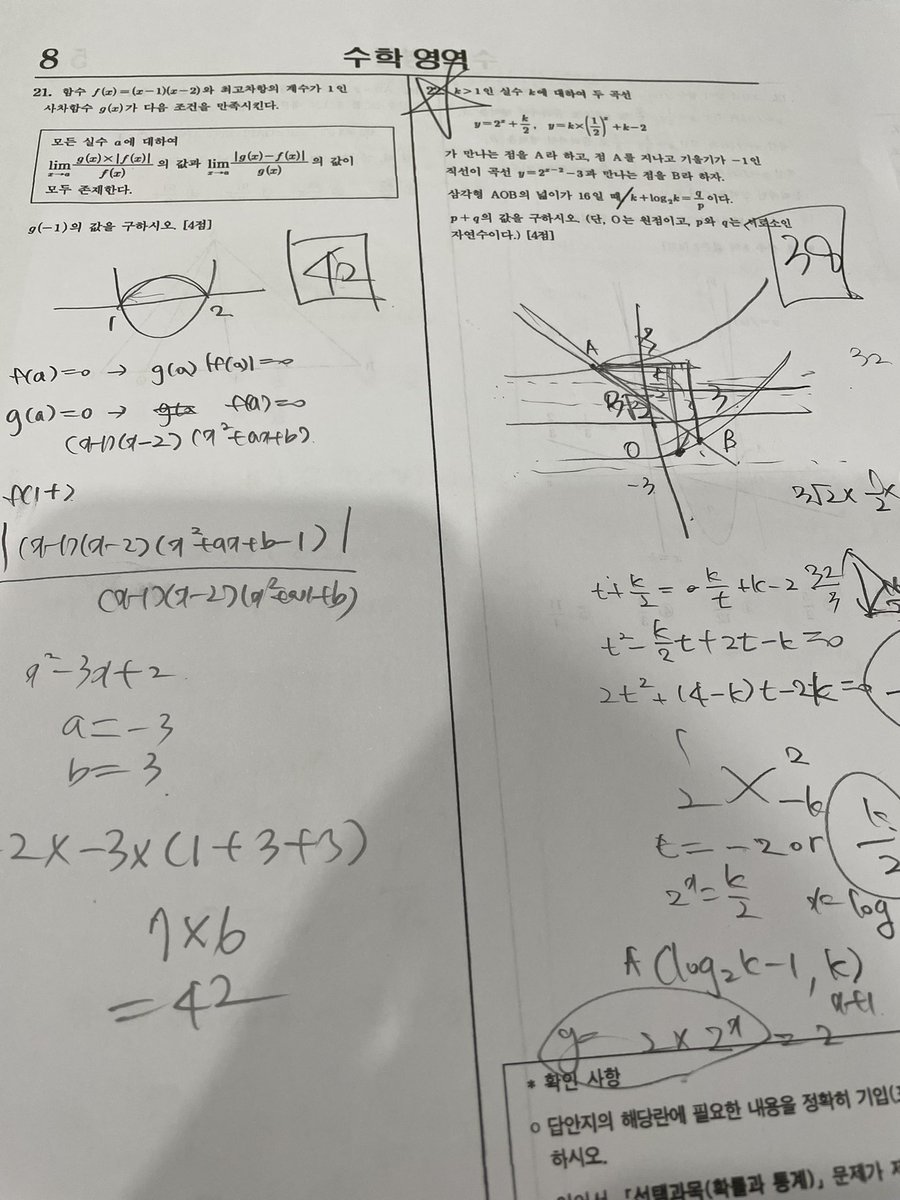 8
수학 영역
21. 함수 f(x)=(x-1)(x-2)와 최고차항의 계수가 1인
사차함수 g(x)가 다음 조건을 만족시킨다.
모든 실수 a에 대하여
lim x→a g(x)×|f(x)|/f(x) 의 값과 lim x→a |g(x)-f(x)|/g(x) 의 값이
모두 존재한다.
g(-1)의 값을 구하시오. [4점]
42
1
2
f(a)=0 → g(a)|f(a)|=0
g(a)=0 → f(a)=0
(x-1)(x-2)(x²+ax+b)
|(x-1)(x-2)(x²+ax+b-1)|
(x-1)(x-2)(x²+ax+b)
x²-3x+2
a=-3
b=3
-2×-3×(1+3+3)
7×6
=42
22. k>1인 실수 k에 대하여 두 곡선
y=2ˣ+k/2, y=k×(1/2)ˣ+k-2
가 만나는 점을 A라 하고, 점 A를 지나고 기울기가 -1인
직선이 곡선 y=2ˣ⁻²-3과 만나는 점을 B라 하자.
삼각형 AOB의 넓이가 16일 때 k+log₂k=q/p이다.
p+q의 값을 구하시오. (단, O는 원점이고, p와 q는 서로소인
자연수이다.) [4점]
38
A
B
O
3
-3
32
3√2×1/2×
t+k/2=k/t+k-2
32/3
t²-k/2t+2t-k=0
2t²+(4-k)t-2k=0
2
2
-k
t=-2 or
k/2
2ˣ=k/2
x=log
A(log₂k-1, k)
x+1
y=2×2ˣ=2
* 확인 사항
○ 답안지의 해당란에 필요한 내용을 정확히 기입(
하시오.
「선택과목(확률과 통계)」 문제가